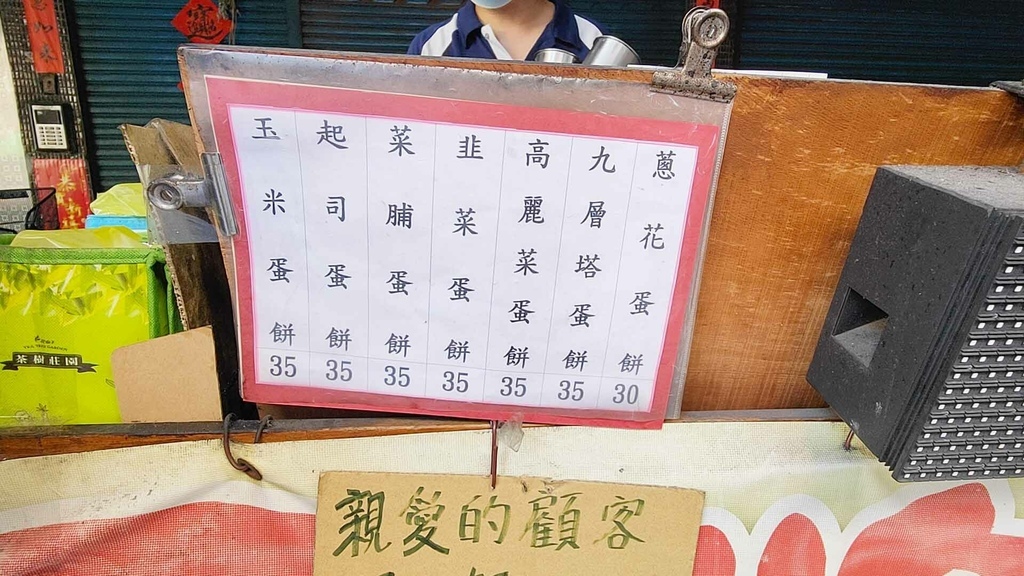 蔥花蛋餅 30
九層塔蛋餅 35
高麗菜蛋餅 35
韭菜蛋餅 35
菜脯蛋餅 35
起司蛋餅 35
玉米蛋餅 35
茶樹莊園
親愛的顧客